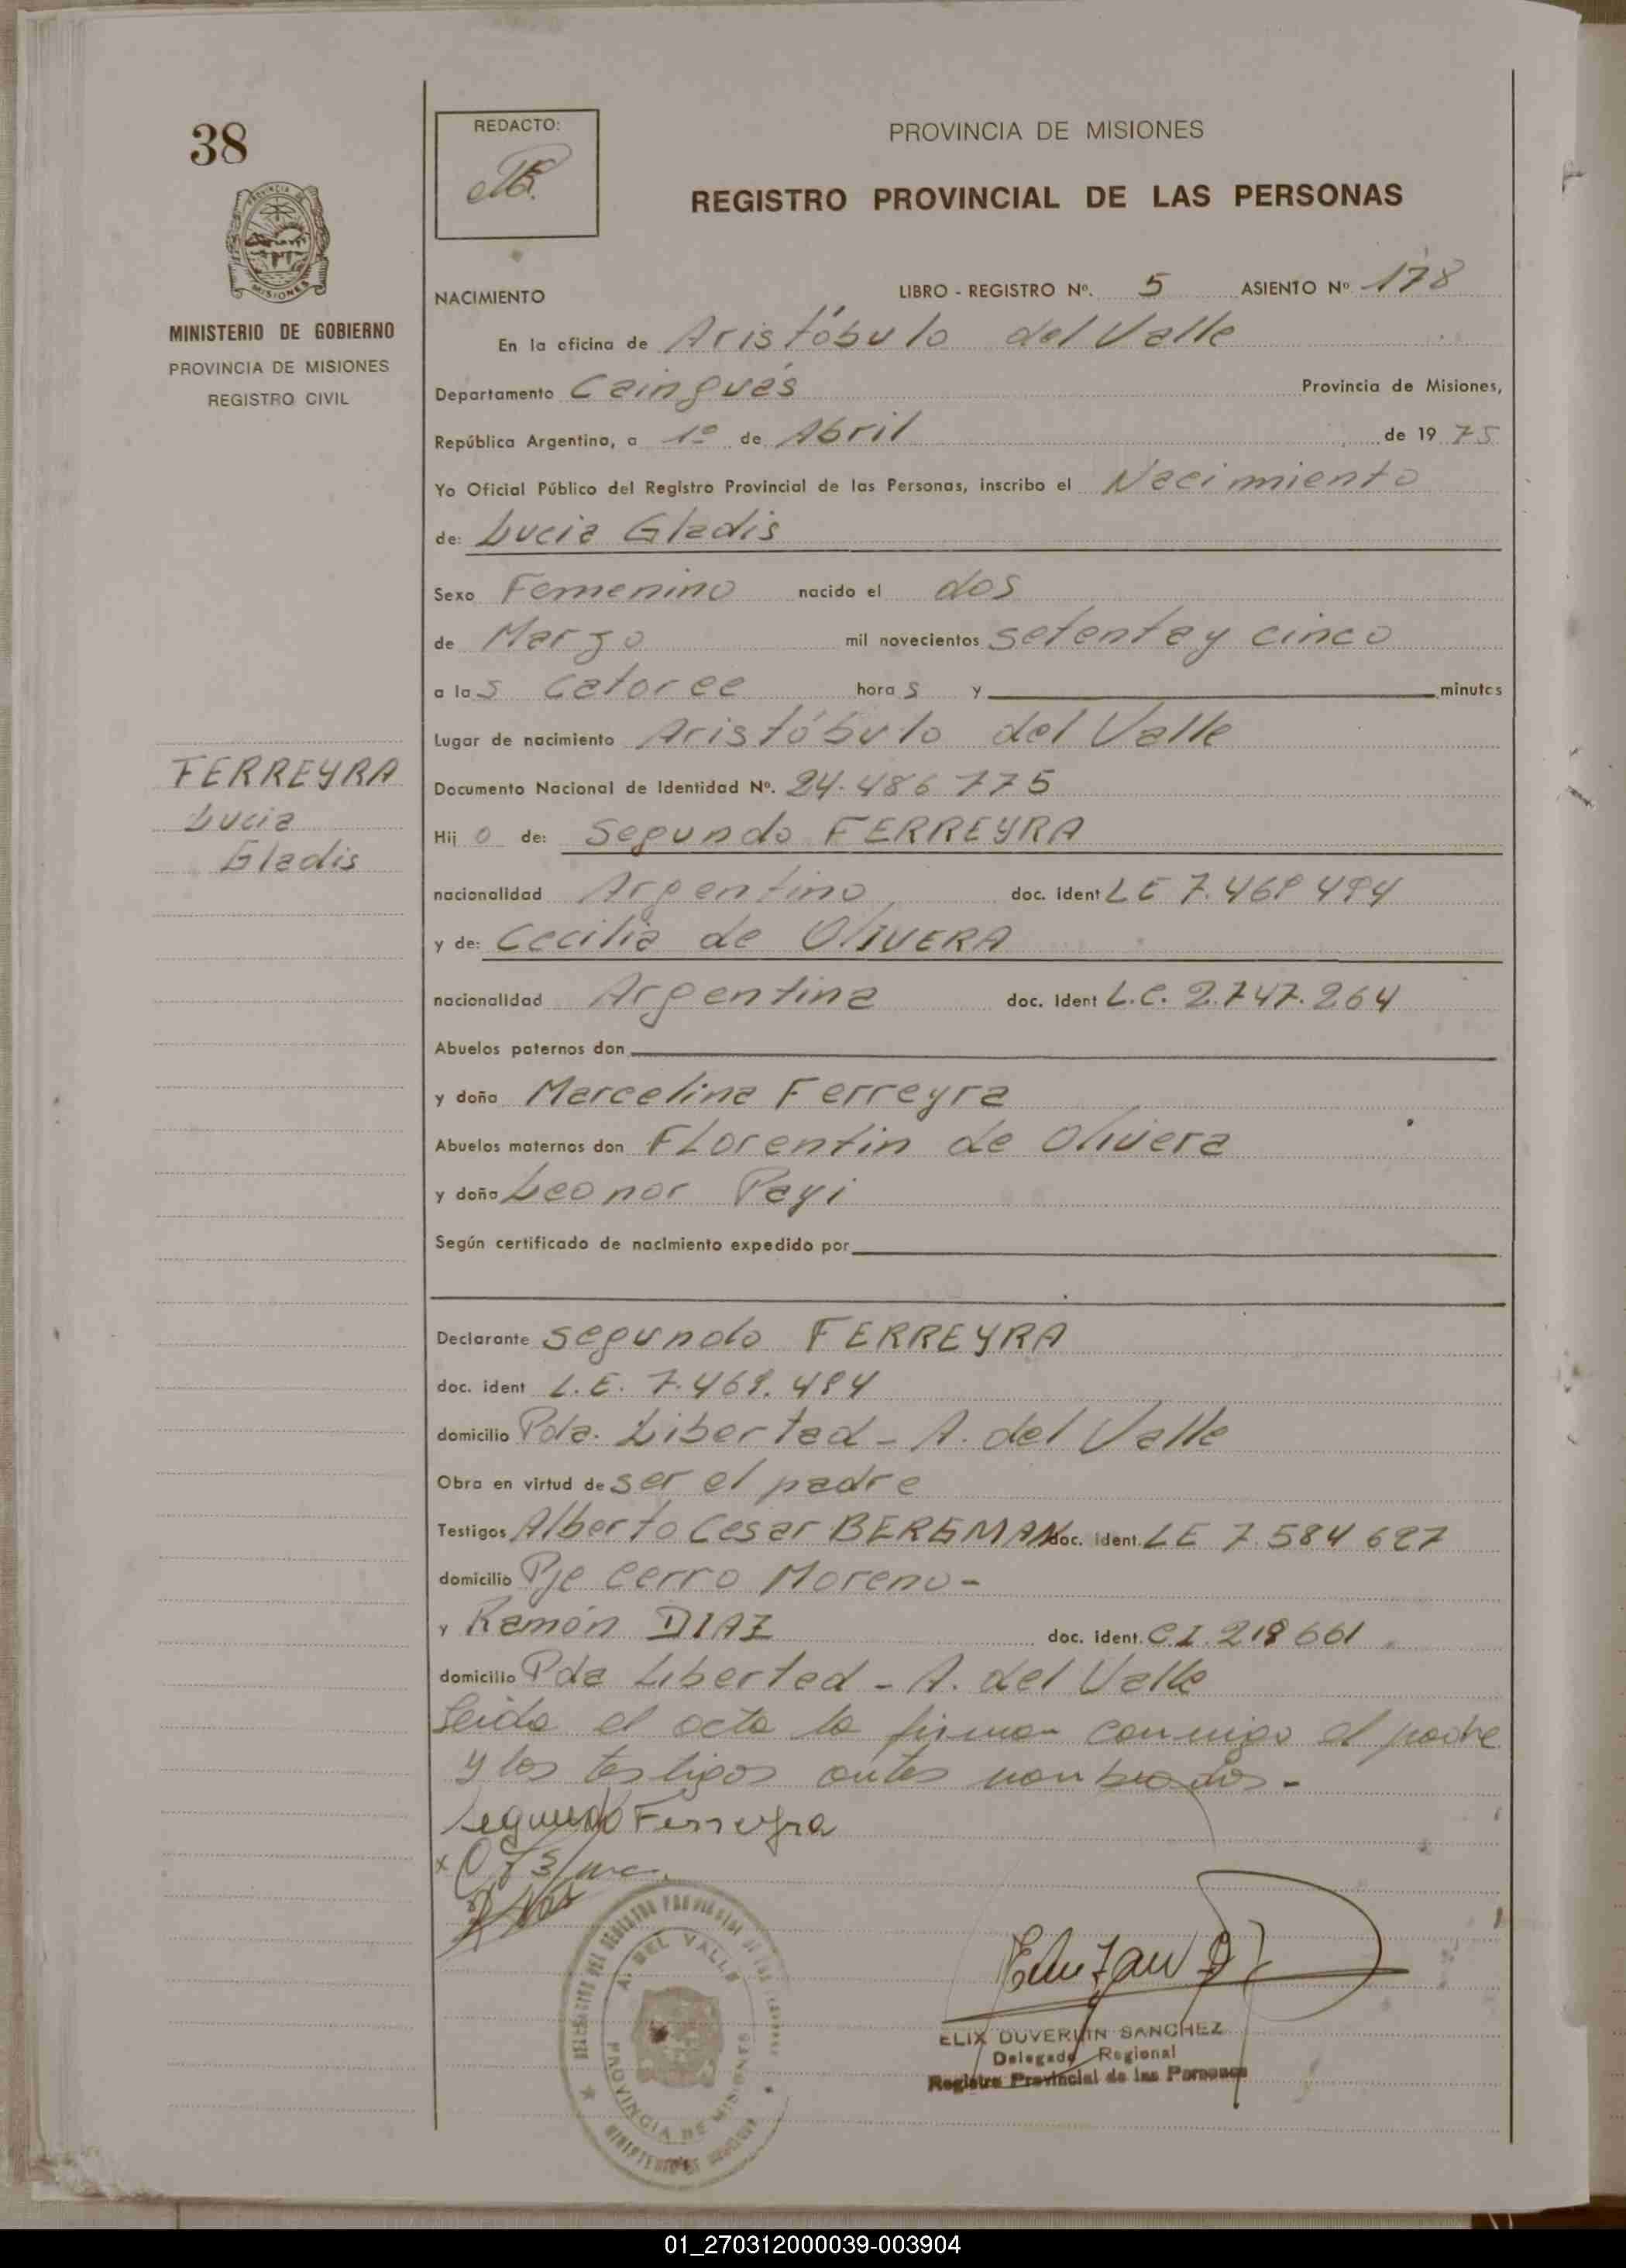 38
REDACTO:
PROVINCIA DE MISIONES
REGISTRO PROVINCIAL DE LAS PERSONAS
MINISTERIO DE GOBIERNO
PROVINCIA DE MISIONES
REGISTRO CIVIL
NACIMIENTO LIBRO - REGISTRO Nº. 5 ASIENTO Nº 178
En la oficina de Aristóbulo del Valle
Departamento Cainguás Provincia de Misiones,
República Argentina, a 1º de Abril de 19 75
Yo Oficial Público del Registro Provincial de las Personas, inscribo el Nacimiento
de: Lucia Gladis
Sexo Femenino nacido el dos
de Marzo mil novecientos setenta y cinco
a las catorce horas y minutos
Lugar de nacimiento Aristóbulo del Valle
FERREYRA
Lucia
Gladis
Documento Nacional de Identidad Nº. 24.486 775
Hijo de: Segundo FERREYRA
nacionalidad Argentino doc. ident LE
y de: Cecilia de OLIVERA
nacionalidad Argentina doc. ident L.C. 2.747.264
Abuelos paternos don
y doña Marcelina Ferreyra
Abuelos maternos don Florentin de Olivera
y doña Leonor Payi
Según certificado de nacimiento expedido por
Declarante Segundo FERREYRA
doc. ident L.E.
domicilio Pda. Libertad - A. del Valle
Obra en virtud de ser el padre
Testigos Alberto Cesar BERGMAN doc. ident. LE 7.584 627
domicilio Pje Cerro Moreno-
y Ramón DIAZ doc. ident. C.I. 218 661
domicilio Pda Libertad - A. del Valle
Leida el acta la firman conmigo el padre
y los testigos antes nombrados.-
Segundo Ferreyra
DELEGACION DEL REGISTRO PROVINCIAL DE LAS PERSONAS
A. DEL VALLE
PROVINCIA DE MISIONES
MINISTERIO DE GOBIERNO
ELIX DUVERLIN SANCHEZ
Delegado Regional
Registro Provincial de las Personas
01_270312000039-003904